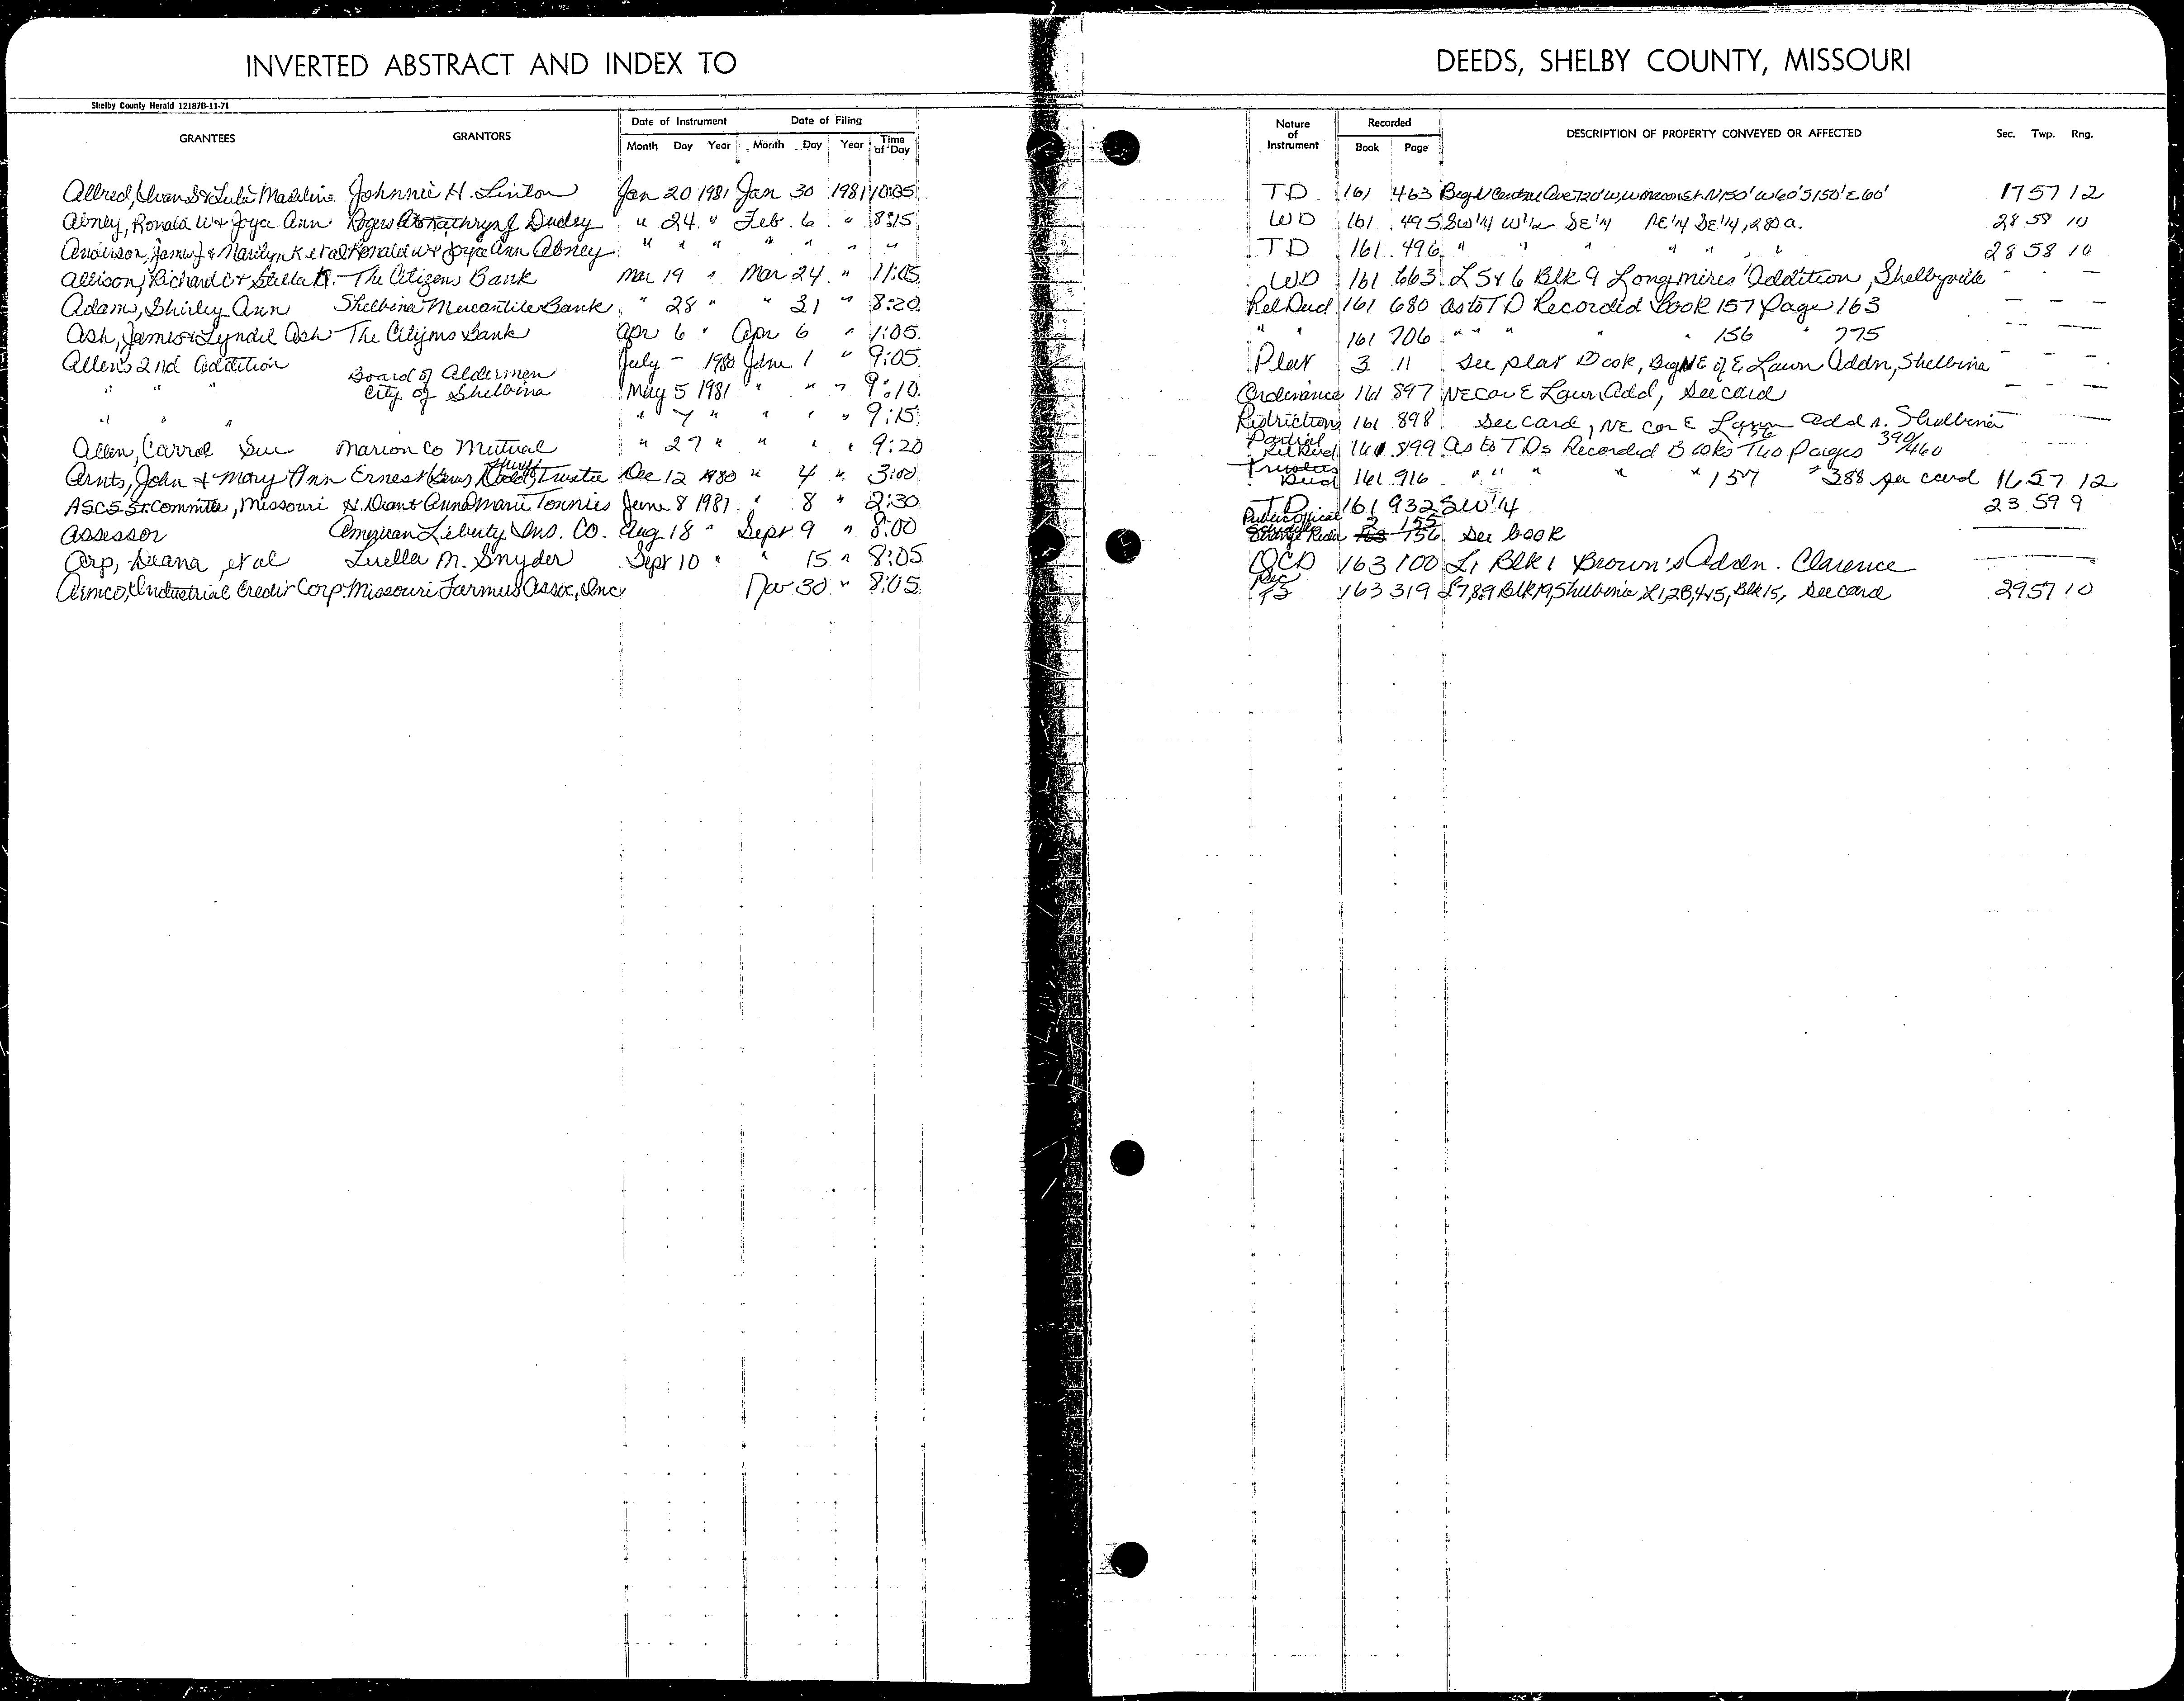 INVERTED ABSTRACT AND INDEX TO
Shelby County Herald 12187B-11-71
GRANTEES GRANTORS Date of Instrument Date of Filing
Month Day Year Month Day Year Time of Day
Allred, Ivan S & Lulu Madeline Johnnie H. Linton Jan 20 1981 Jan 30 1981 10:05
Abney, Ronald W & Joyce Ann Kathryn J Dudley " 24 " Feb. 6 " 8:15
Anderson, James J & Marilyn K et al Ronald W & Joyce Ann Abney " " " " " " "
Allison, Richard C & Stella The Citizens Bank Mar 19 " Mar 24 " 11:05
Adams, Shirley Ann Shelbina Mercantile Bank " 28 " " 31 " 8:20
Ash, James & Lyndel Ash The Citizens Bank Apr 6 " Apr 6 " 1:05
Allen's 2nd Addition July - 1980 June 1 " 9:05
" " " Board of Aldermen City of Shelbina May 5 1981 " " " 9:10
" " " " 7 " " " " 9:15
Allen, Carrol Sue Marion Co Mutual " 27 " " " " 9:20
Arnts, John & Mary Ann Ernest Trustee Dec 12 1980 " 4 " 3:00
ASCS St. Committee, Missouri & Anna Marie Tonnies June 8 1981 " 8 " 2:30
Assessor American Liberty Ins. Co. Aug 18 " Sept 9 " 8:00
Arp, Deana et al Luella M. Snyder Sept 10 " " 15 " 8:05
Armco, Industrial Credit Corp. Missouri Farmers Assoc, Inc Nov 30 " 8:05
DEEDS, SHELBY COUNTY, MISSOURI
Nature of Instrument Recorded DESCRIPTION OF PROPERTY CONVEYED OR AFFECTED Sec. Twp. Rng.
Book Page
TD 161 463 Beg N Central Ave 720' W, W Macon St. N 150' W 60' S 150' E 60' 17 57 12
WD 161 495 SW 1/4 W 1/2 SE 1/4 NE 1/4 SE 1/4, 280 a. 28 58 10
TD 161 496 " " " " " 28 58 10
WD 161 663 L 5 & 6 Blk 9 Longmires Addition, Shelbyville - - -
Rel Deed 161 680 As to TD Recorded Book 157 Page 163 - - -
" " 161 706 " " " " " 156 " 775 - - -
Plat 3 11 See plat Book, Beg NE of E Lawn Addn, Shelbina - - -
Ordinance 161 897 NE Cor E Lawn Add, See card - - -
Restrictions 161 898 See card, NE cor E Lawn Addn. Shelbina
Partial Rel Deed 161 899 As to TDs Recorded Books Two Pages 390/460
Trustees Deed 161 916 " " " " " 157 " 388 see card 16 57 12
TD 161 932 SW 1/4 23 59 9
Public Official 2 155 156 see book
QCD 163 100 L1 Blk 1 Brown's Addn. Clarence
FS 163 319 L7,8,9 Blk 19, Shelbina, L1,2,3,4&5, Blk 15, See card 29 57 10